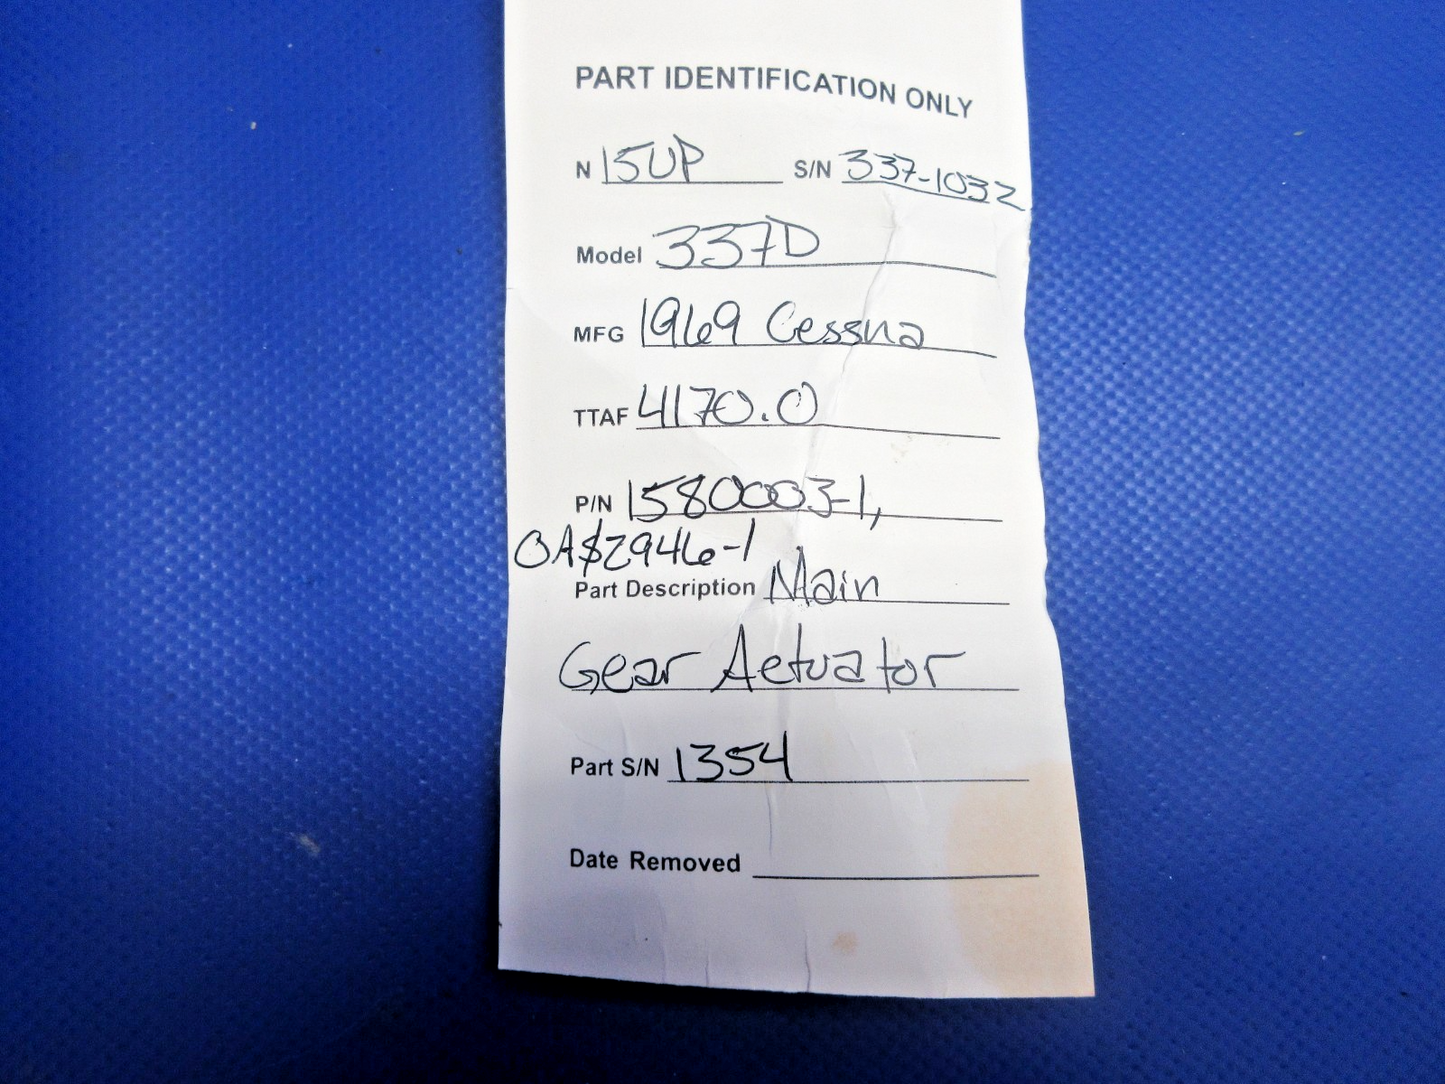 PART IDENTIFICATION ONLY
N 15UP S/N 337-1032
Model 337D
MFG 1969 Cessna
TTAF 4170.0
P/N 1580003-1,
OAS2946-1
Part Description Main
Gear Actuator
Part S/N 1354
Date Removed